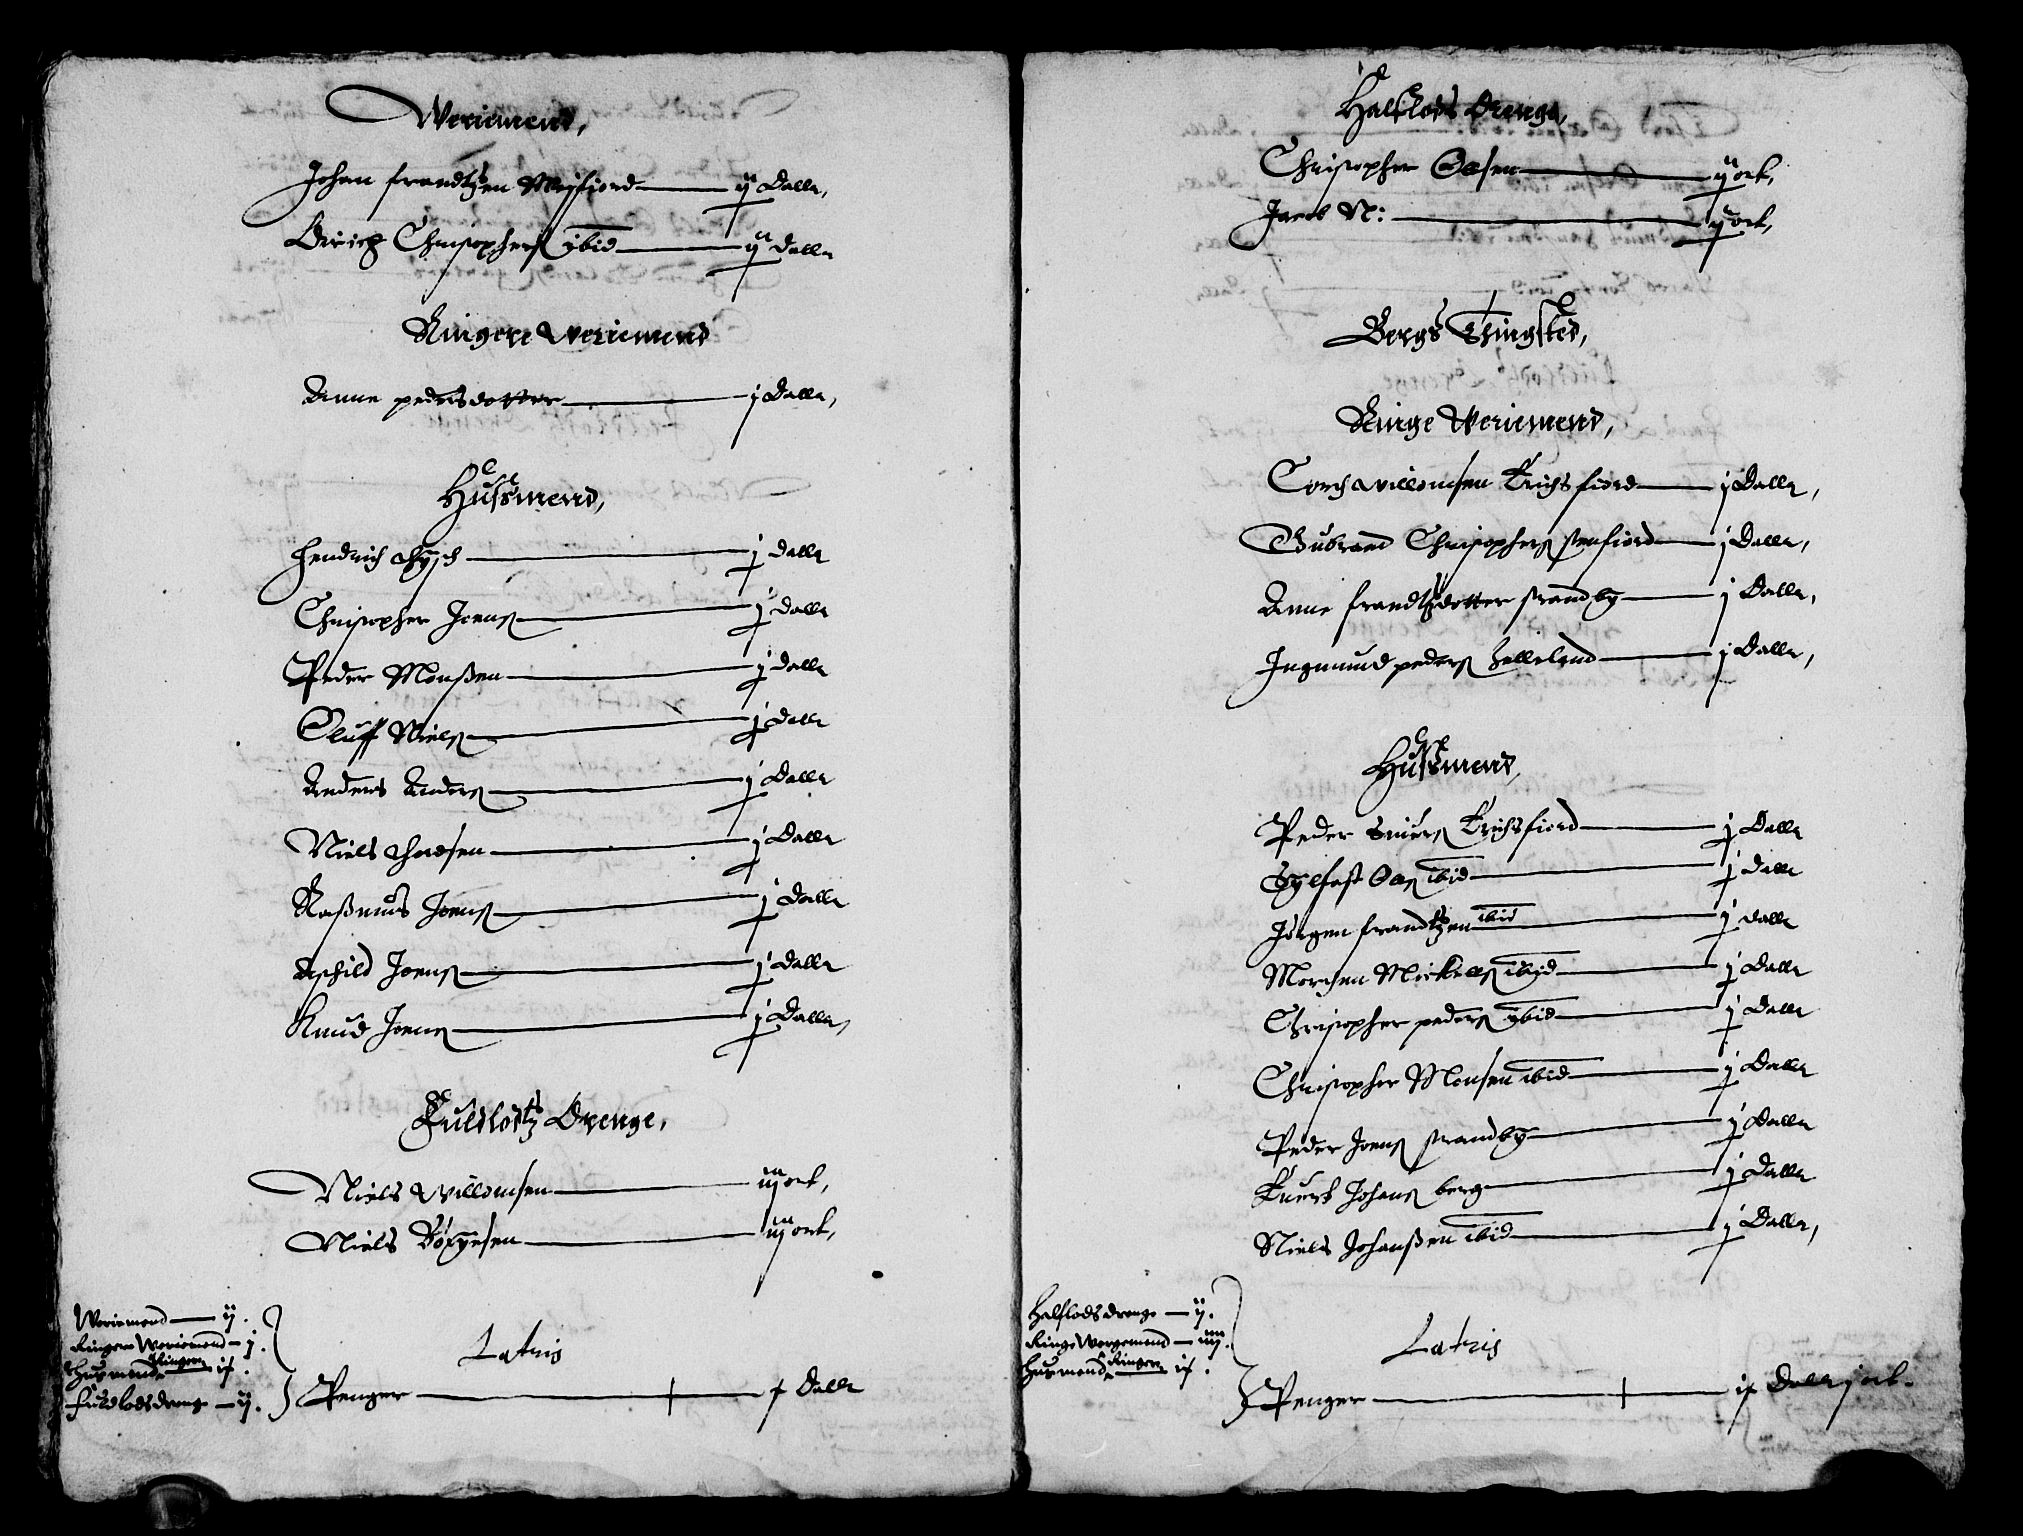 Weriemend,
Johan frandtzen Mefiord — ij Daller,
Dirich Christophers ibid — ij daller
Ringere Weriemend
Anne pedersdotter — j Daller,
Hussmend,
Hendrich — j daller
Christopher Joens — j daller
Peder Monßen — j daller
Oluff Niels — j daller
Anders Anders — j Daller
Niels — j Daller
Raßmus Joens — j Daller
Aschild Joens — j daller
Knud Joens — j Daller,
Fuldlodtz Drenge,
Niels Willomsen — iij ort,
Niels Børgesen — iij ort,
Weriemend — ij.
Ringer Weriemend — j.
Husmend Ringer — ix.
Fuldlodsdrenge — ij.
Lateris
Penger — x Daller
Halflods Drenge,
Christopher Olsen — ij ort,
Jacob N: — ij ort,
Bergs Thingsted,
Ringe Weriemend,
Willomsen Erichsfiord — j Daller,
Gubrand Christophers stenfiord — j Daller,
Anne frandtzdotter strandby — j Daller,
Ingmund peders — j Daller,
Hussmend,
Peder Siuers Erichsfiord — j Daller
Sylfast Ols ibid — j daller
Jørgen frandtzen ibid — j daller
Morthen Mickels ibid — j Daller
Christopher peders ibid — j Daller
Christopher Monsen ibid — j Daller
Peder Joens strandby — j Daller
Euert Johans berg — j Daller
Niels Johanßen ibid — j Daller,
Halflodsdrenge — ij.
Ringe Wergemend — iiij.
Husmend Ringer — ix.
Lateris
Penger — ix Daller j ort.